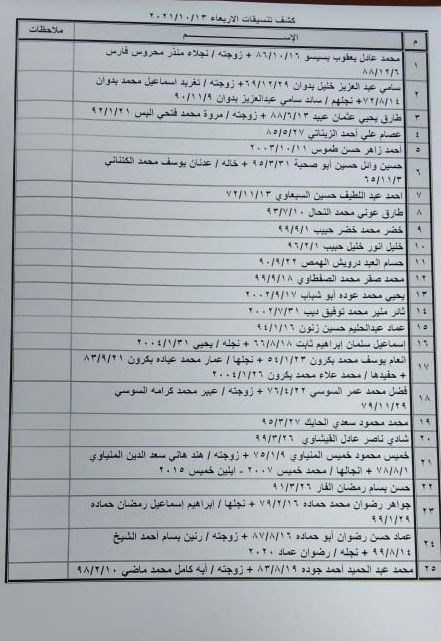 كشف تنسيقات الاربعاء ٢٠٢١/١٠/١٣
م الاســـــــم ملاحظات
١ محمد عادل يعقوب بسيسو ٨٦/١٠/١٦ + زوجته / نجلاء منذر محروس فارس
٨٨/١٢/٦
٢ سامي عبد العزيز خليل بدوان ٦٩/١٢/٢٩+ زوجته / تغريد اسماعيل محمد بدوان
٧٢/٨/١٤+ نجلهم / سائد سامي عبدالعزيز بدوان ٩٠/١١/٩
٣ طارق يحيي عثمان عبيد ٨٨/٦/١٣ + زوجته / مروة محمد فتحي اليس ٩٢/١/٢١
٤ عصام علي أحمد الزيناتي ٨٥/٥/٢٧
٥ أحمد زاهر حسن طموس ٢٠٠٣/١٠/١١
٦ حسين وائل حسين أبو صحبة ٩٥/٣/٣١ + خاله / عدنان يوسف محمد الكتناني
٦٥/١١/٣
٧ احمد عبد اللطيف حسين السبعاوي ٧٢/١١/١٣
٨ طارق عوني محمد النحال ٩٣/٧/١٠
٩ خضر محمد خضر حبيب ٩٩/٩/١
١٠ خليل انور خليل حبيب ٩٦/٢/١
١١ حسام العبد درويش الهمص ٩٠/٩/٢٢
١٢ محمد صقر محمد الصفطاوي ٩٩/٩/١٨
١٣ يحيي محمد عوده أبو شباب ٢٠٠٢/٩/١٧
١٤ ثائر منير محمد توفيق ديب ٢٠٠٢/٧/٣١
١٥ عماد عبدالحليم حسين زنون ٩٤/١/١٦
١٦ إسماعيل سلمان إبراهيم ثابت ٦٦/٨/١٨ + نجله / يحيي ٢٠٠٤/١/٣١
١٧ انعام يوسف محمد بكرون ٥٤/١/٢٣ + نجلها / عمار محمد عياده بكرون ٨٣/٩/٢١
+ حفيدها / محمد علاء محمد بكرون ٢٠٠٤/١/٢٦
١٨ فضل محمد عمر السوسي ٧٦/٤/٢٢ + زوجته / عبير محمد كرامه السوسي
٧٩/١١/٢٩
١٩ محمد محمود سعدي الحايك ٩٥/٣/٢٧
٢٠ شادي ناصر عادل القيشاوي ٩٩/٣/٢٦
٢١ خميس محمود خميس المنياوي ٧٥/١/٩ + زوجته / هند هاني سعد الدين المنياوي
٧٨/٨/١ + انجالها / محمد خميس ٢٠٠٧ - ايلين خميس ٢٠١٥
٢٢ حسن بسام رمضان الفار ٩١/٣/٢٦
٢٣ جواهر رضوان محمد حماده ٧٩/٢/١٦ + نجلها / إبراهيم إسماعيل رمضان حماده
٩٩/١/٢٩
٢٤ عماد حسن رضوان أبو حماده ٨٧/٨/١٦ + زوجته / رنين بسام أحمد الشيخ
٩٩/٨/١٤ + نجله / رضوان عماد ٢٠٢٠
٢٥ محمد عبد الحميد أحمد جوده ٨٣/٨/١٩ + زوجته / أيه كامل محمد ماضي ٩٨/٢/١٠